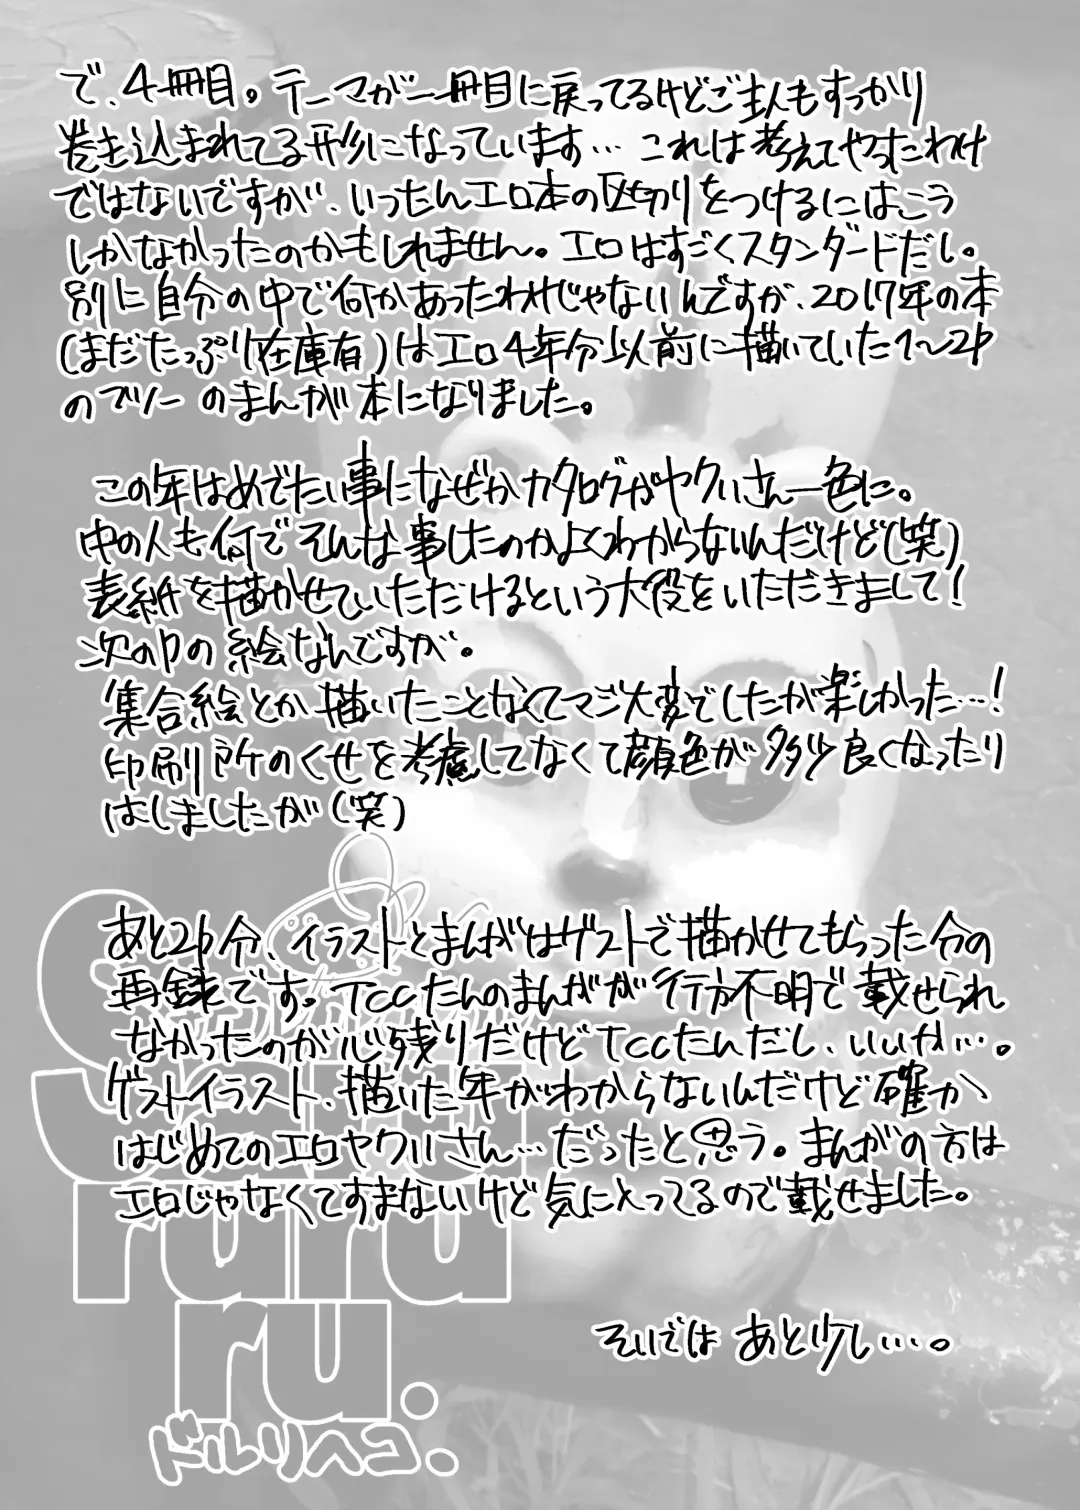 で、4冊目。テーマが一冊目に戻ってるけどご主人もすっかり
巻き込まれてる形になっています…これは考えてやったわけ
ではないですが、いったんエロ本の区切りをつけるにはこう
しかなかったのかもしれません。エロはすごくスタンダードだし。
別に自分の中で何かあったわけじゃないんですが、2017年の本
(まだたっぷり在庫有)はエロ4年分以前に描いていた1〜2P
のフツーのまんが本になりました。
この年はめでたい事になぜかカタログがヤクいさん一色に。
中の人も何でそんな事したのかよくわからないんだけど(笑)
表紙を描かせていただけるという大役をいただきまして!
次のPの絵なんですが。
集合絵とか描いたことなくてマジ大変でしたが楽しかった…!
印刷所のくせを考慮してなくて顔色が多少良くなったり
はしましたが(笑)
あと2P分、イラストとまんがはゲストで描かせてもらった分の
再録です。TCCたんのまんがが行方不明で載せられ
なかったのが心残りだけどTCCたんだし、いいか…。
ゲストイラスト、描いた年がわからないんだけど確か
はじめてのエロヤクいさん…だったと思う。まんがの方は
エロじゃなくてすまないけど気に入ってるので載せました。
それでは あと少し…。
ruru
ru.
ドルリヘコ.